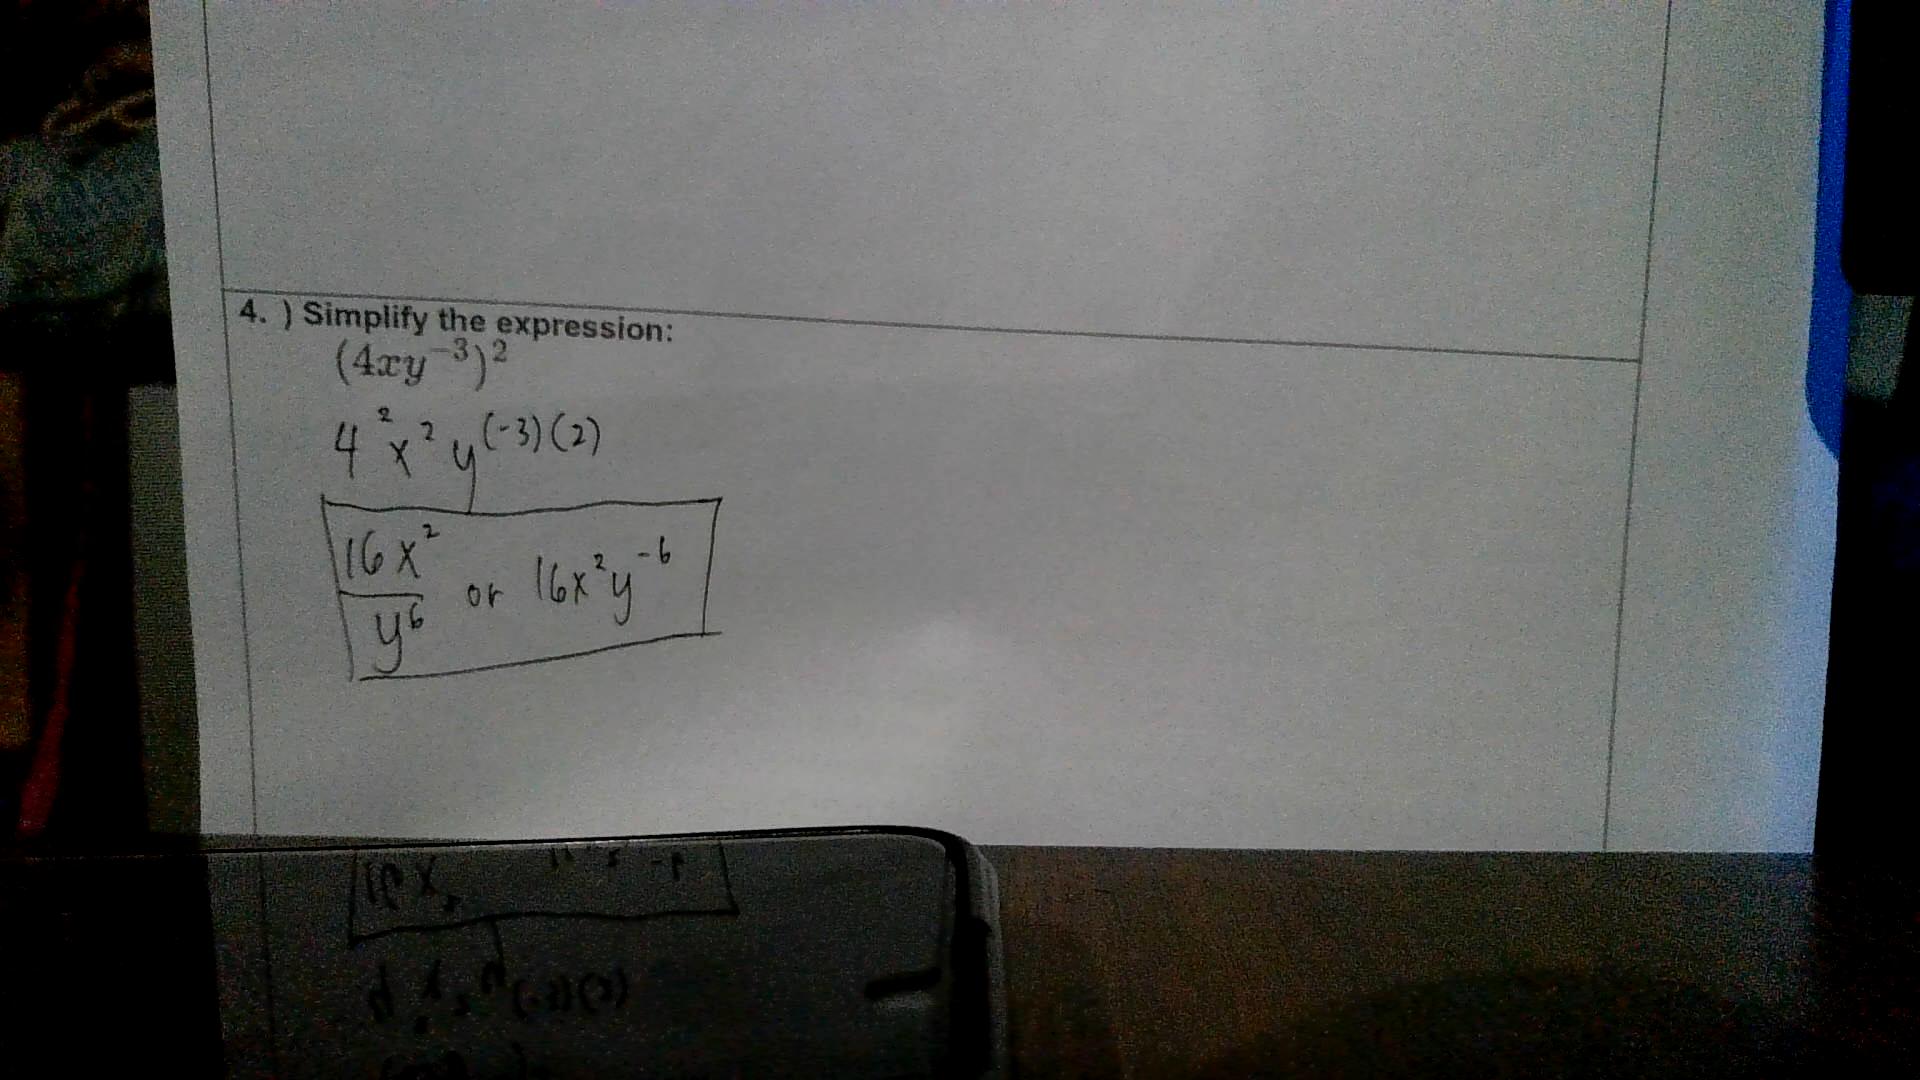 4. ) Simplify the expression:
(4xy⁻³)²
4²x²y⁽⁻³⁾⁽²⁾
16x²/y⁶ or 16x²y⁻⁶